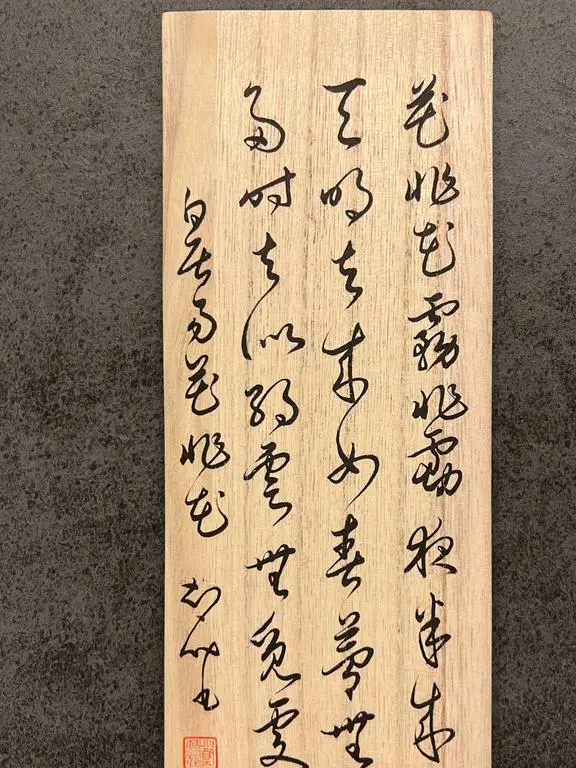 花非花霧非霧夜半來
天明去來如春夢無
多時去似朝雲無覓處
白居易花非花